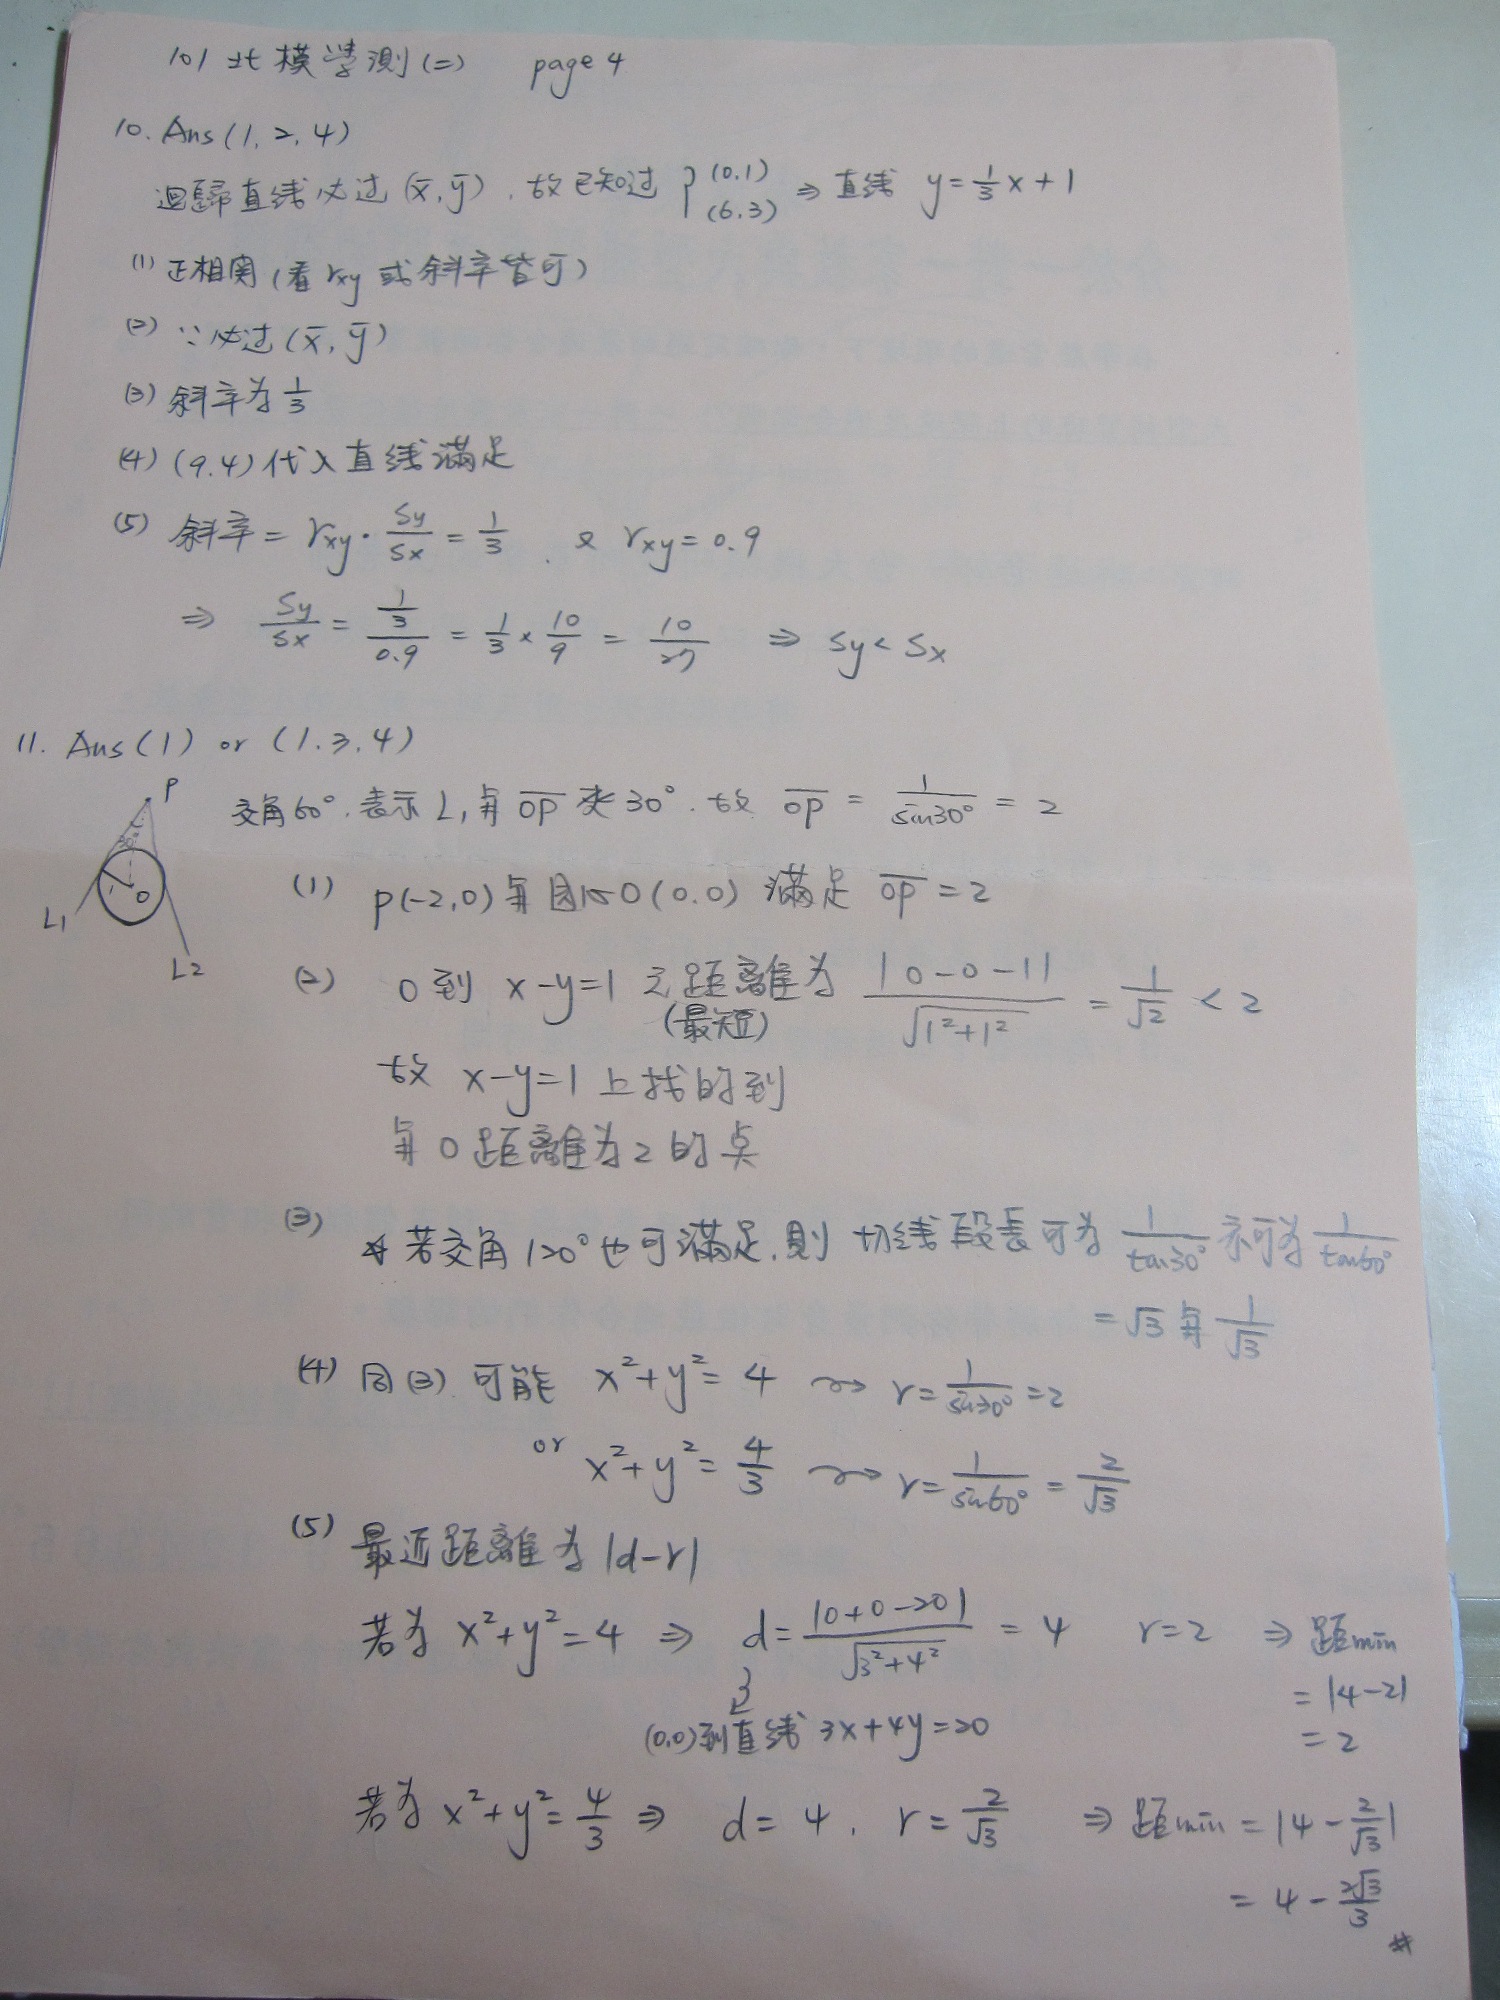 101 北模學測(二) page 4
10. Ans(1,2,4)
迴歸直线必过(x̄,ȳ),故已知过{(0,1) (6,3) ⇒ 直线 y=1/3x+1
(1) 正相関(看rxy 或斜率皆可)
(2) ∵必过(x̄,ȳ)
(3) 斜率为1/3
(4) (9,4)代入直线滿足
(5) 斜率=rxy·Sy/Sx=1/3, 又 rxy=0.9
⇒ Sy/Sx=(1/3)/0.9=1/3×10/9=10/27 ⇒ Sy<Sx
11. Ans(1) or (1,3,4)
P
30°
1
O
L1
L2
交角60°,表示L1与OP̅夾30°,故 OP̅=1/sin30°=2
(1) P(-2,0)与园心O(0,0) 滿足 OP̅=2
(2) O到 x-y=1 之距離为 |0-0-1|/√(1²+1²)=1/√2<2
(最短)
故 x-y=1 上找的到
与O距離为2的点
(3) ☆若交角120°也可滿足,則 切线段長可为 1/tan30° 亦可为 1/tan60°
=√3与1/√3
(4) 同(3) 可能 x²+y²=4 ⇝ r=1/sin30°=2
or x²+y²=4/3 ⇝ r=1/sin60°=2/√3
(5) 最近距離为|d-r|
若为 x²+y²=4 ⇒ d=|0+0-20|/√(3²+4²)=4 r=2 ⇒ 距min
=|4-2|
(0,0)到直线 3x+4y=20
=2
若为 x²+y²=4/3 ⇒ d=4, r=2/√3 ⇒ 距min=|4-2/√3|
=4-2√3/3
#